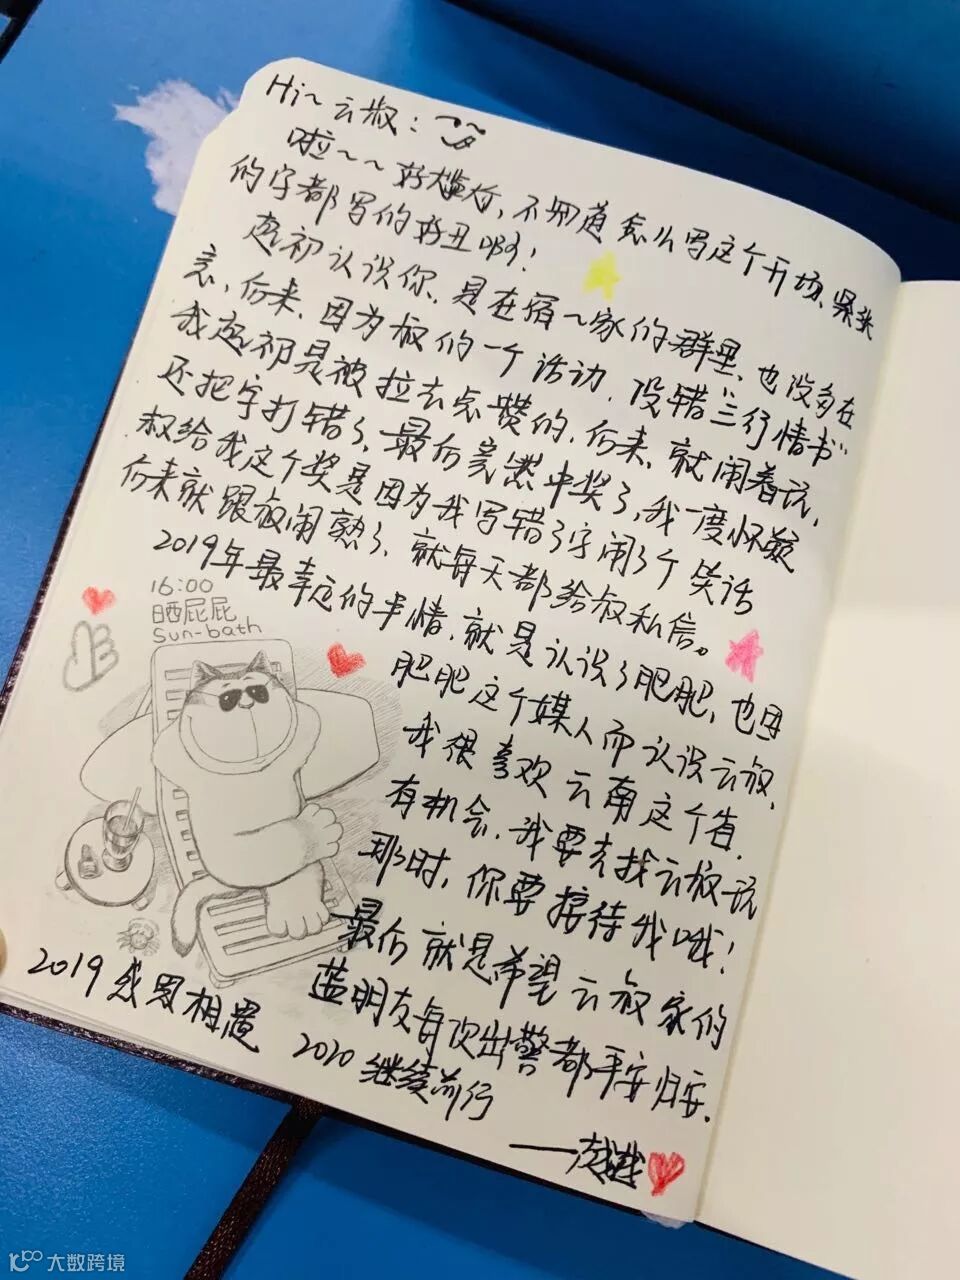 Hi~云叔：
啦~~好尴尬，不知道怎么写这个开场、紧张
的字都写的好丑啊！
起初认识你，是在宿~家的群里、也没多在
意、后来、因为叔的一个活动，没错“三行情书”
我起初是被拉去点赞的，后来、就闹着玩，
还把字打错了、最后竟然中奖了，我一度怀疑
叔给我这个奖是因为我写错了字闹了个笑话
后来就跟叔闹熟了、就每天都给叔私信。
2019年最幸运的事情，就是认识了肥肥，也因
肥肥这个媒人而认识云叔，
我很喜欢云南这个省，
有机会，我要去找云叔玩
那时，你要接待我哦！
最后就是希望云叔家的
蓝朋友每次出警都平安归安.
16:00
晒屁屁
Sun-bath
2019 感恩相遇 2020 继续前行
大数跨境